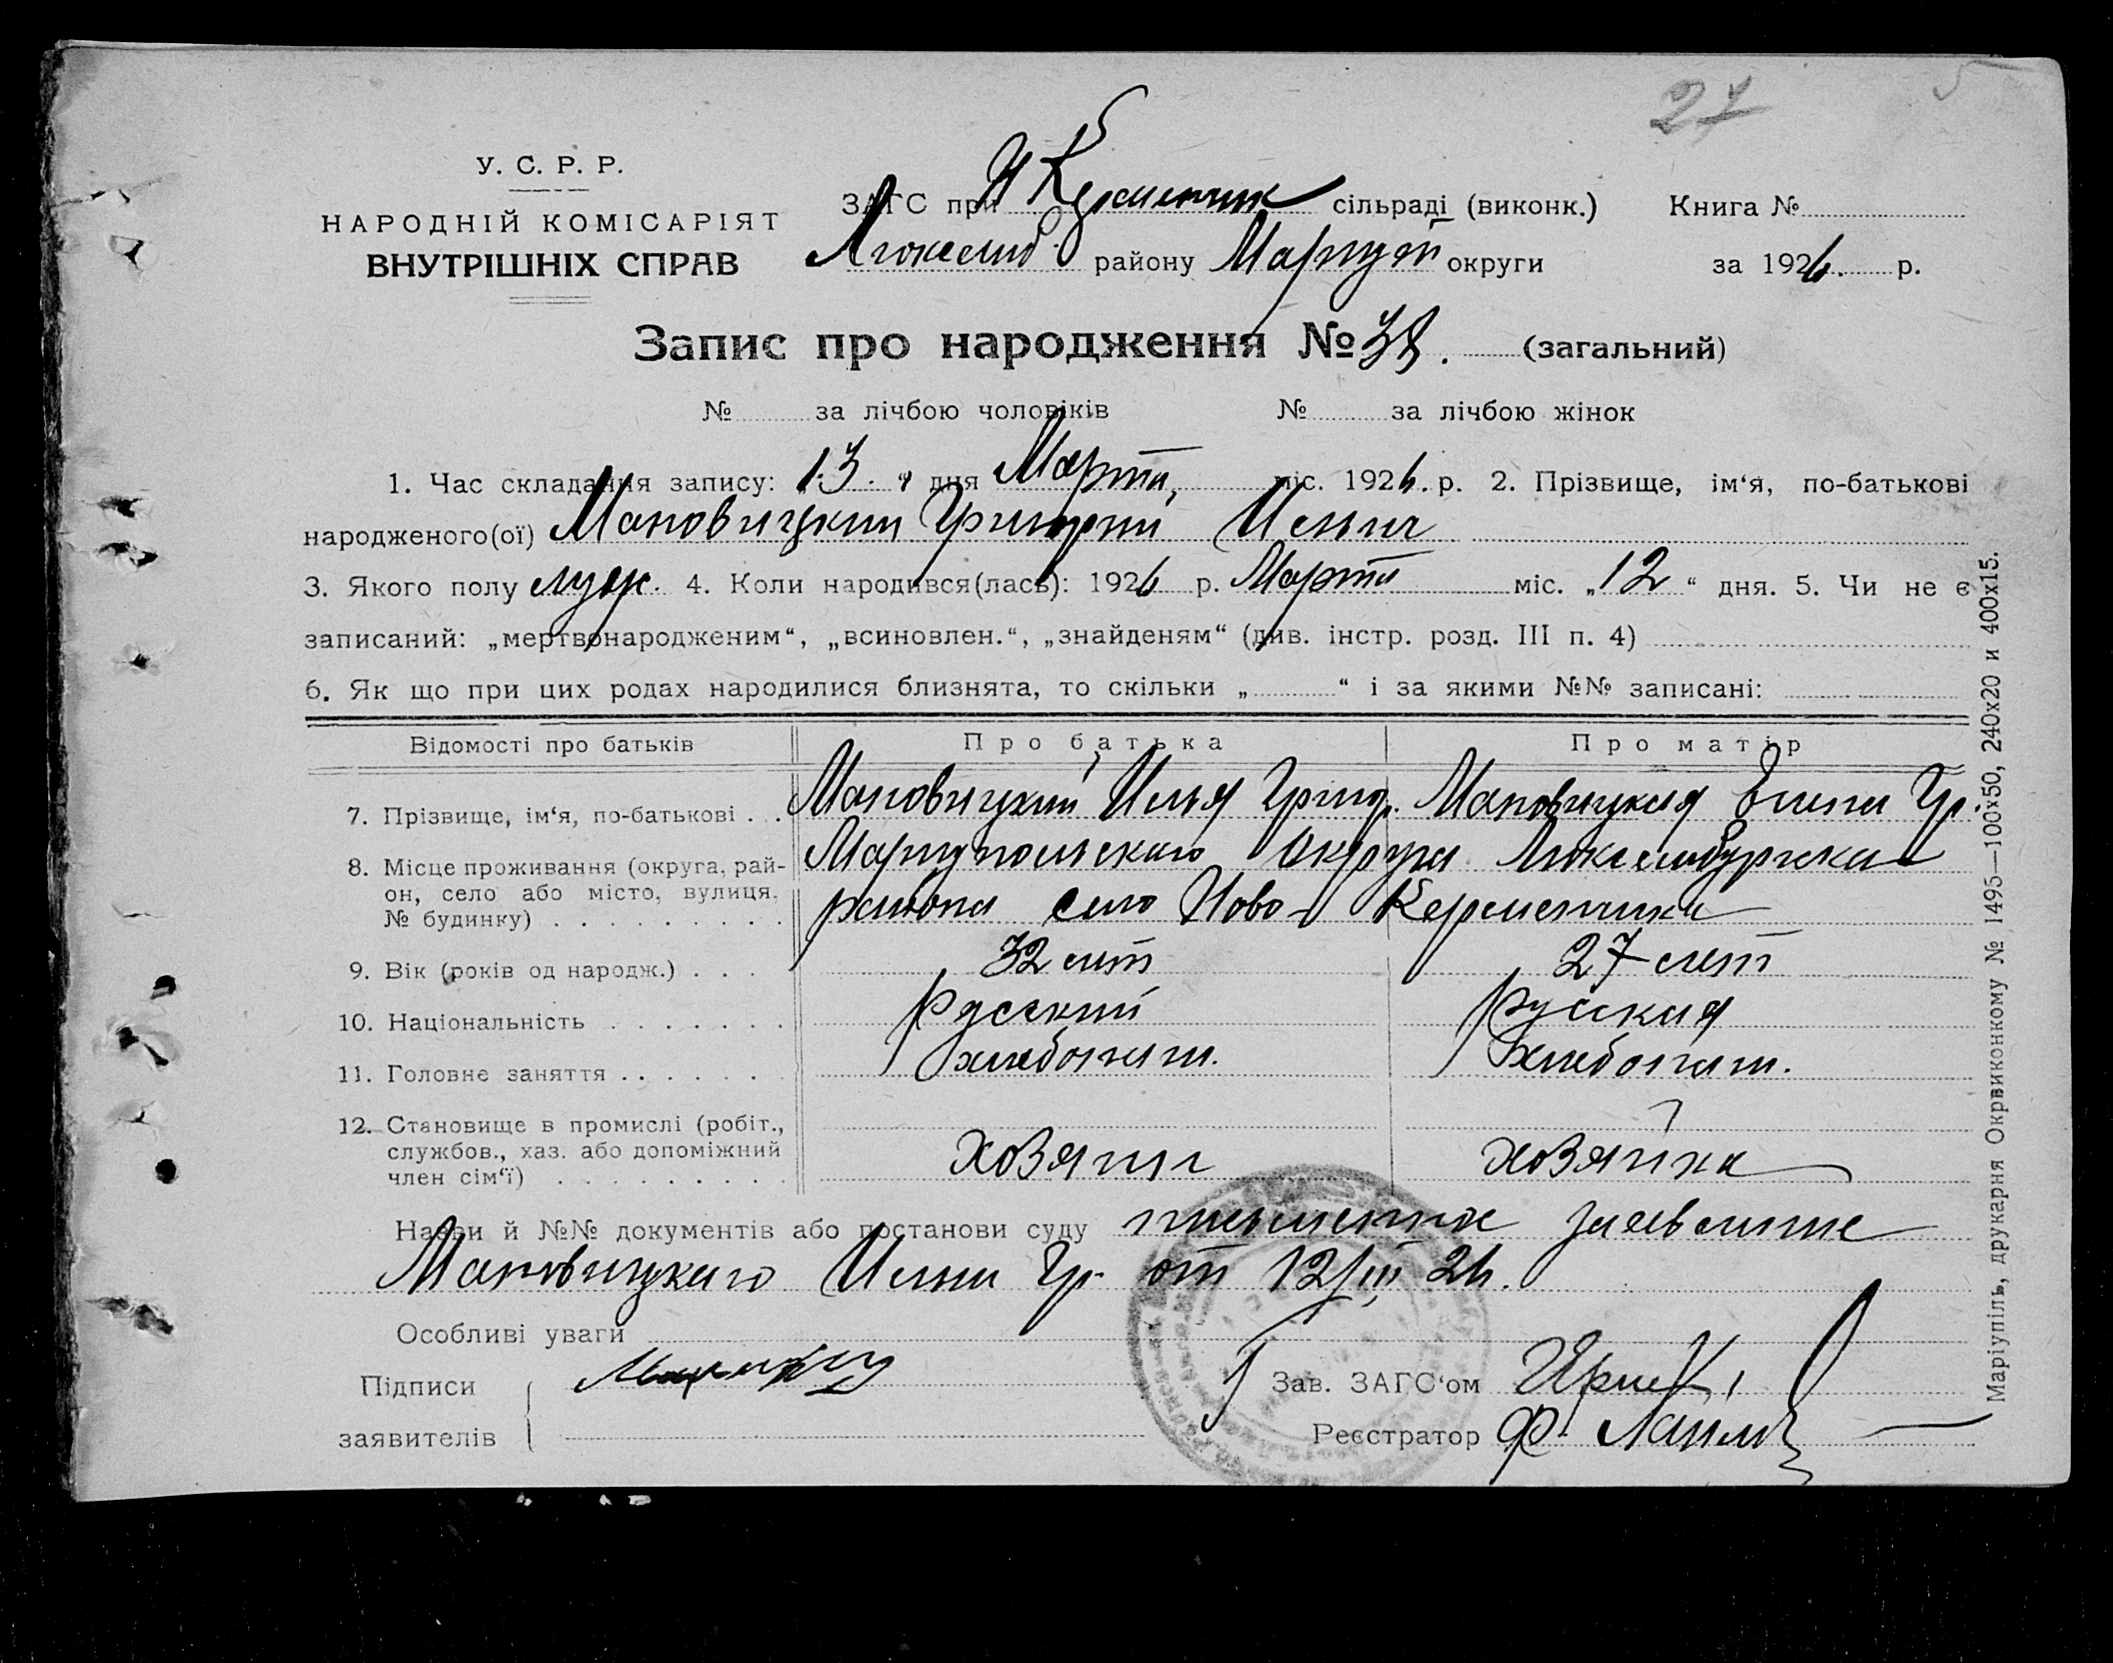 27
У. С. Р. Р.
НАРОДНІЙ КОМІСАРІЯТ
ВНУТРІШНІХ СПРАВ
ЗАГС при Н Керменчик сільраді (виконк.) Книга №
Люксемб. району Маріуп округи за 1926. р.
Запис про народження № 38. (загальний)
№ за лічбою чоловіків № за лічбою жінок
1. Час складання запису: „13.“ дня Марта, міс. 1926. р. 2. Прізвище, ім‘я, по-батькові
народженого(ої) Мановицкий Григорий Ильич
3. Якого полу муж. 4. Коли народився(лась): 1926 р. Марта міс. „12“ дня. 5. Чи не є
записаний: „мертвонародженим“, „всиновлен.“, „знайденям“ (див. інстр. розд. III п. 4)
6. Як що при цих родах народилися близнята, то скільки „ “ і за якими №№ записані:
Відомості про батьків Про батька Про матір
7. Прізвище, ім‘я, по-батькові . . Мановицкий Илья Григор. Мановицкая Елена Гр.
8. Місце проживання (округа, рай-
он, село або місто, вулиця,
№ будинку)
Мариупольского Округа Люксембургска
района село Ново-Керменчика
9. Вік (років од народж.) . . . 32 лет 27 лет
10. Національність Русский Русская
11. Головне заняття хлебопаш. хлебопаш.
12. Становище в промислі (робіт.,
службов., хаз. або допоміжний
член сім‘ї)
хозяин хозяйка
Назви й №№ документів або постанови суду письменное заявление
Мановицкаго Ильи Гр. от 12/III 26.
Особливі уваги
Підписи
заявителів
Зав. ЗАГС‘ом
Реєстратор Ф.
Маріупіль, друкарня Окрвиконкому № 1495—100х50, 240х20 и 400х15.